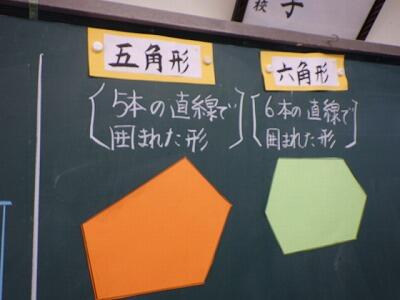 校 子
五角形
5本の直線で
囲まれた形
六角形
6本の直線で
囲まれた形